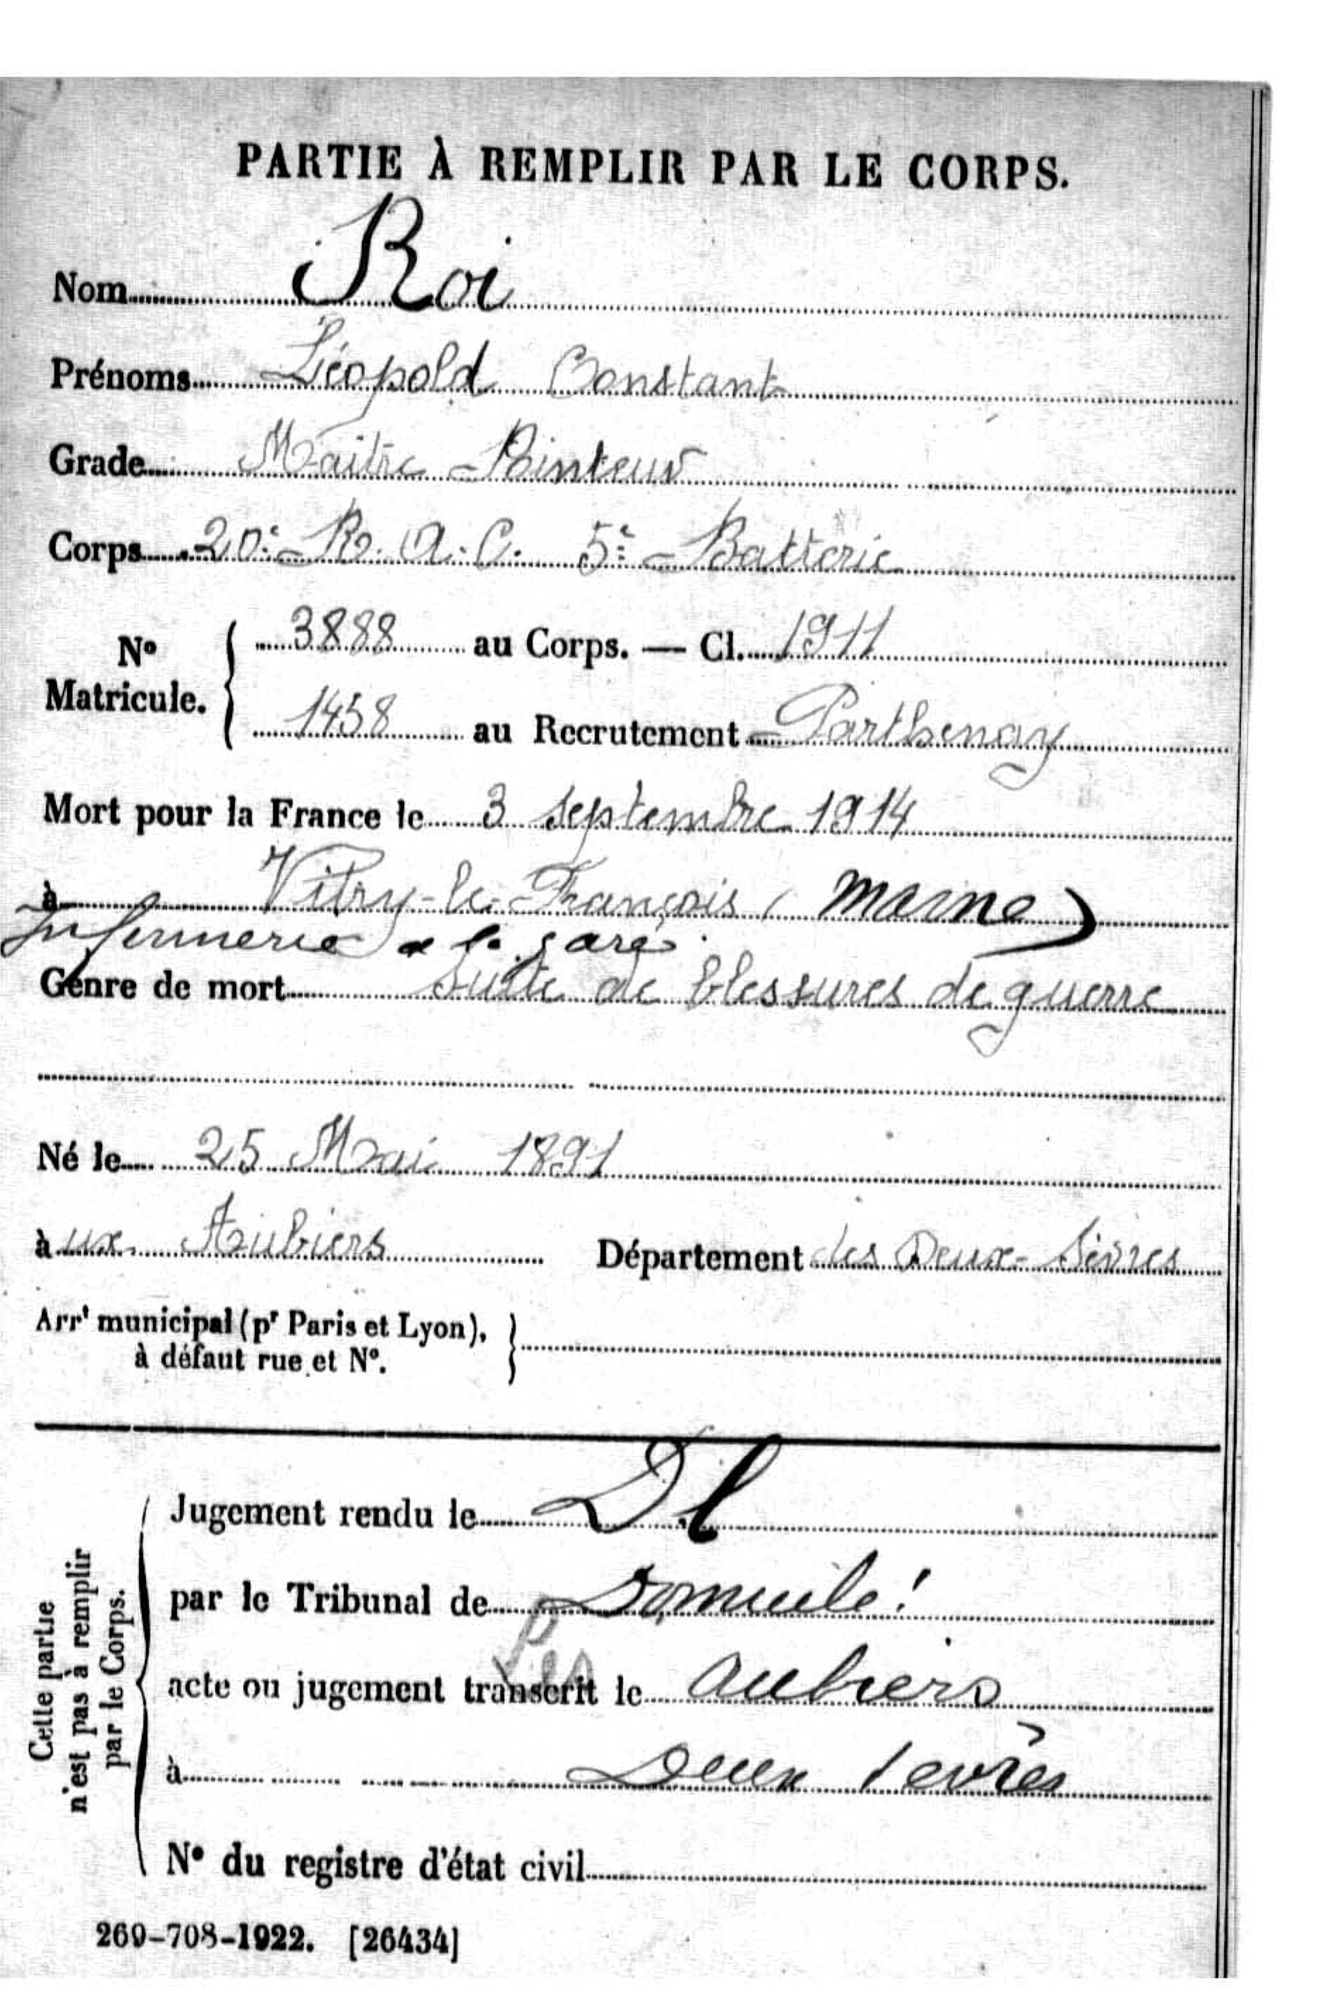 PARTIE À REMPLIR PAR LE CORPS.
Nom Roi
Prénoms Léopold Constant
Grade Maitre-Pointeur
Corps 20e R. A. C. 5e Batterie
No Matricule. { 3888 au Corps. — Cl. 1911
1458 au Recrutement Parthenay
Mort pour la France le 3 septembre 1914
à Vitry-le-François (Marne)
Infirmerie de la gare
Genre de mort suite de blessures de guerre
Né le 25 Mai 1891
à ux Aubiers Département des Deux-Sèvres
Arrt municipal (pr Paris et Lyon), à défaut rue et No. }
Cette partie n'est pas à remplir par le Corps.
Jugement rendu le Dl
par le Tribunal de Domicile!
acte ou jugement transcrit le Aubiers
à Deux Sevrès
No du registre d'état civil
269-708-1922. [26434]